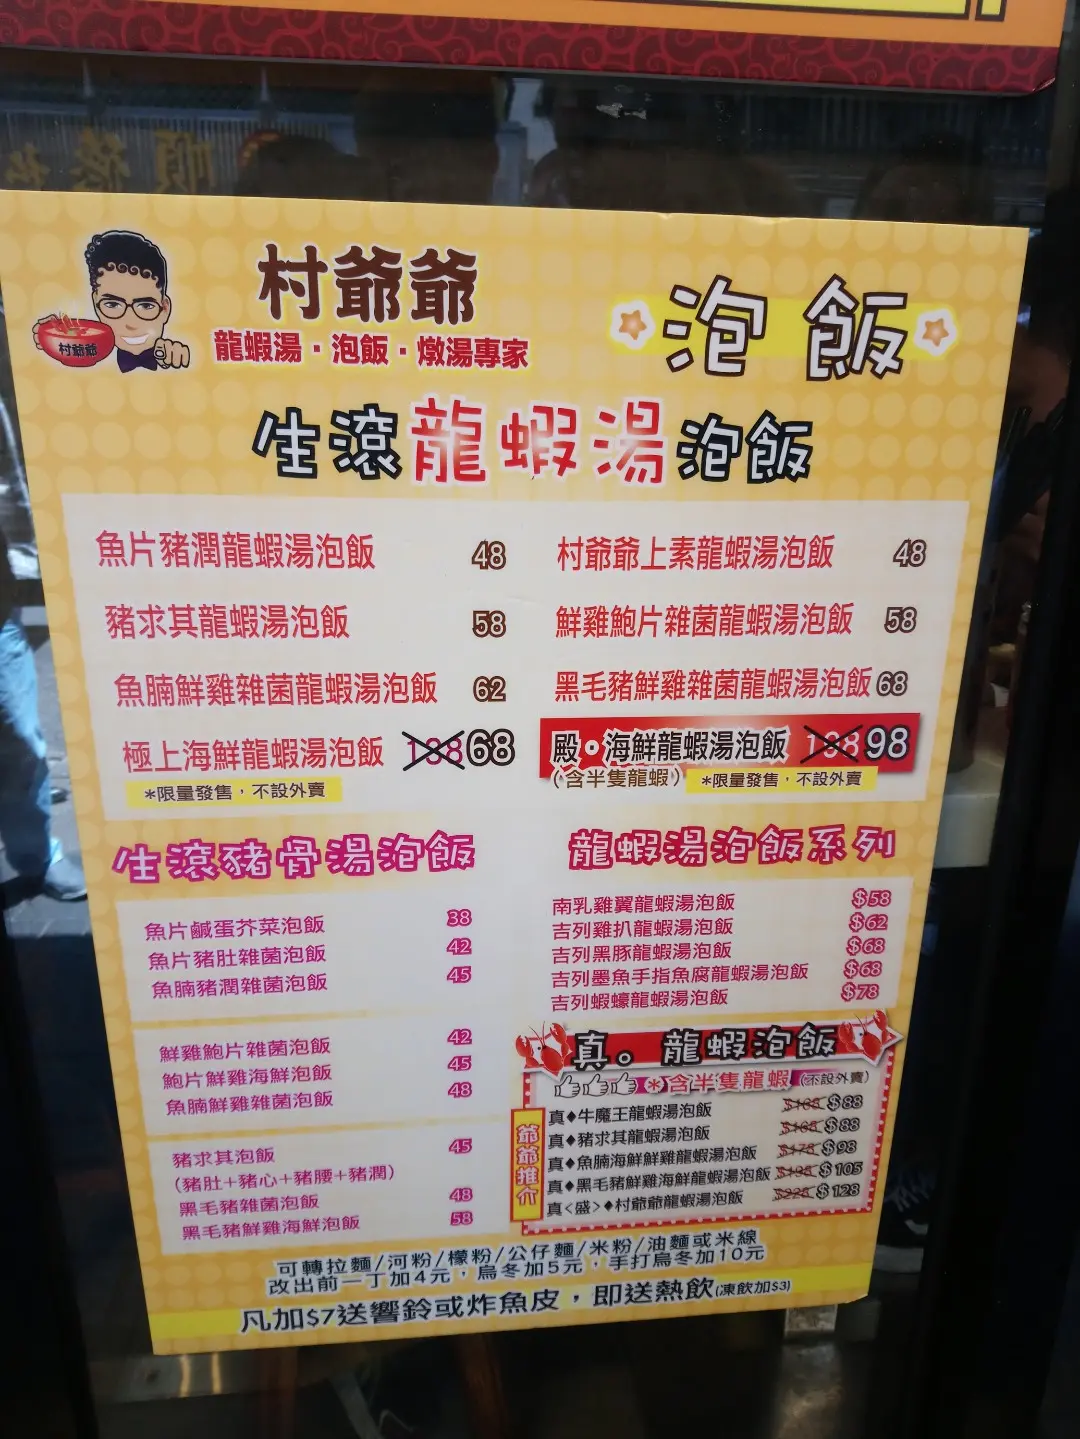 順德
村爺爺
龍蝦湯·泡飯·燉湯專家
村爺爺
泡飯
生滾龍蝦湯泡飯
魚片豬潤龍蝦湯泡飯 48
豬求其龍蝦湯泡飯 58
魚腩鮮雞雜菌龍蝦湯泡飯 62
極上海鮮龍蝦湯泡飯 138 68
*限量發售，不設外賣
村爺爺上素龍蝦湯泡飯 48
鮮雞鮑片雜菌龍蝦湯泡飯 58
黑毛豬鮮雞雜菌龍蝦湯泡飯 68
殿•海鮮龍蝦湯泡飯 98
(含半隻龍蝦) *限量發售，不設外賣
生滾豬骨湯泡飯
魚片鹹蛋芥菜泡飯 38
魚片豬肚雜菌泡飯 42
魚腩豬潤雜菌泡飯 45
鮮雞鮑片雜菌泡飯 42
鮑片鮮雞海鮮泡飯 45
魚腩鮮雞雜菌泡飯 48
豬求其泡飯 45
(豬肚+豬心+豬腰+豬潤)
黑毛豬雜菌泡飯 48
黑毛豬鮮雞海鮮泡飯 58
龍蝦湯泡飯系列
南乳雞翼龍蝦湯泡飯 $58
吉列雞扒龍蝦湯泡飯 $62
吉列黑豚龍蝦湯泡飯 $68
吉列墨魚手指魚腐龍蝦湯泡飯 $68
吉列蝦蠔龍蝦湯泡飯 $78
真。龍蝦泡飯
*含半隻龍蝦 (不設外賣)
爺爺推介
真♦牛魔王龍蝦湯泡飯 $168 $88
真♦豬求其龍蝦湯泡飯 $168 $88
真♦魚腩海鮮鮮雞龍蝦湯泡飯 $178 $98
真♦黑毛豬鮮雞海鮮龍蝦湯泡飯 $198 $105
真<盛>♦村爺爺龍蝦湯泡飯 $228 $128
可轉拉麵/河粉/檬粉/公仔麵/米粉/油麵或米線
改出前一丁加4元，烏冬加5元，手打烏冬加10元
凡加$7送響鈴或炸魚皮，即送熱飲(凍飲加$3)